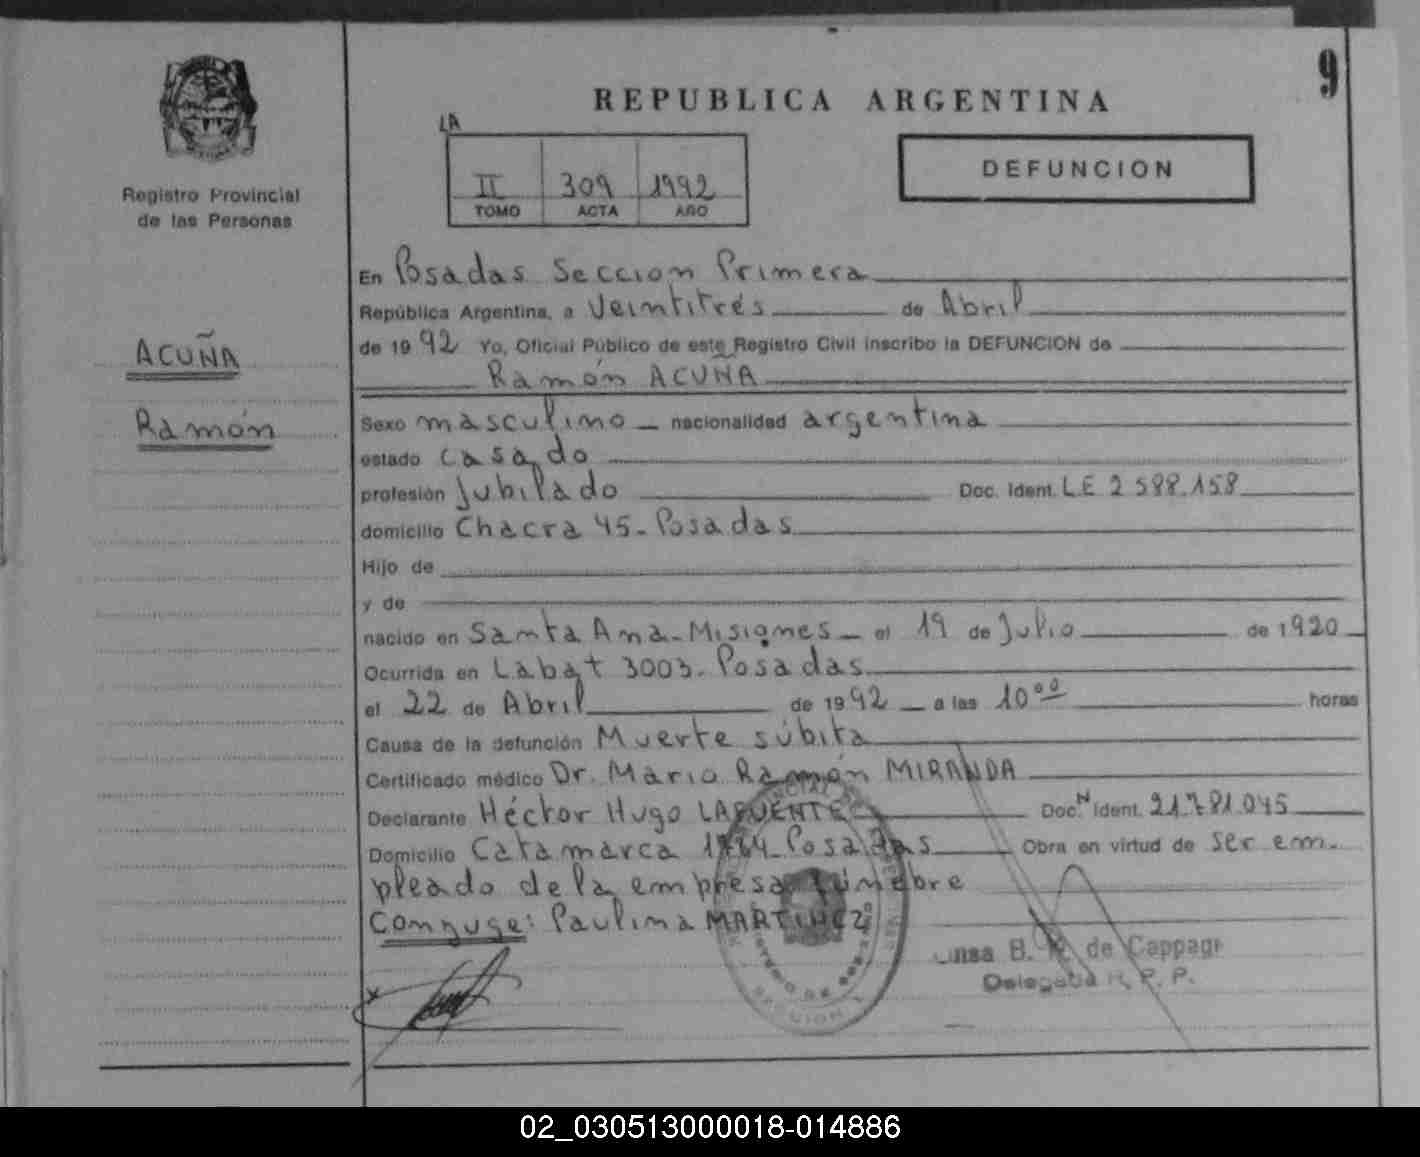 9
REPUBLICA ARGENTINA
Registro Provincial
de las Personas
LA
II 309 1992
TOMO ACTA AÑO
DEFUNCION
ACUÑA
Ramón
En Posadas Seccion Primera
República Argentina, a Veintitrés de Abril
de 1992 Yo, Oficial Público de este Registro Civil inscribo la DEFUNCION de
Ramón ACUÑA
Sexo masculino nacionalidad argentina
estado casado
profesión Jubilado Doc. Ident. LE 2 588.158
domicilio Chacra 45 - Posadas
Hijo de
y de
nacido en Santa Ana - Misiones el 19 de Julio de 1920
Ocurrida en Labat 3003 - Posadas
el 22 de Abril de 1992 a las 10⁰⁰ horas
Causa de la defunción Muerte súbita
Certificado médico Dr. Mario Ramón MIRANDA
Declarante Héctor Hugo LAFUENTE Doc.N Ident. 21.781.045
Domicilio Catamarca Posadas Obra en virtud de ser em-
pleado de la empresa fúnebre
Conyuge: Paulina MARTINEZ
B. de Cappagi
Delegada R. P. P.
SECCION 1
02_030513000018-014886